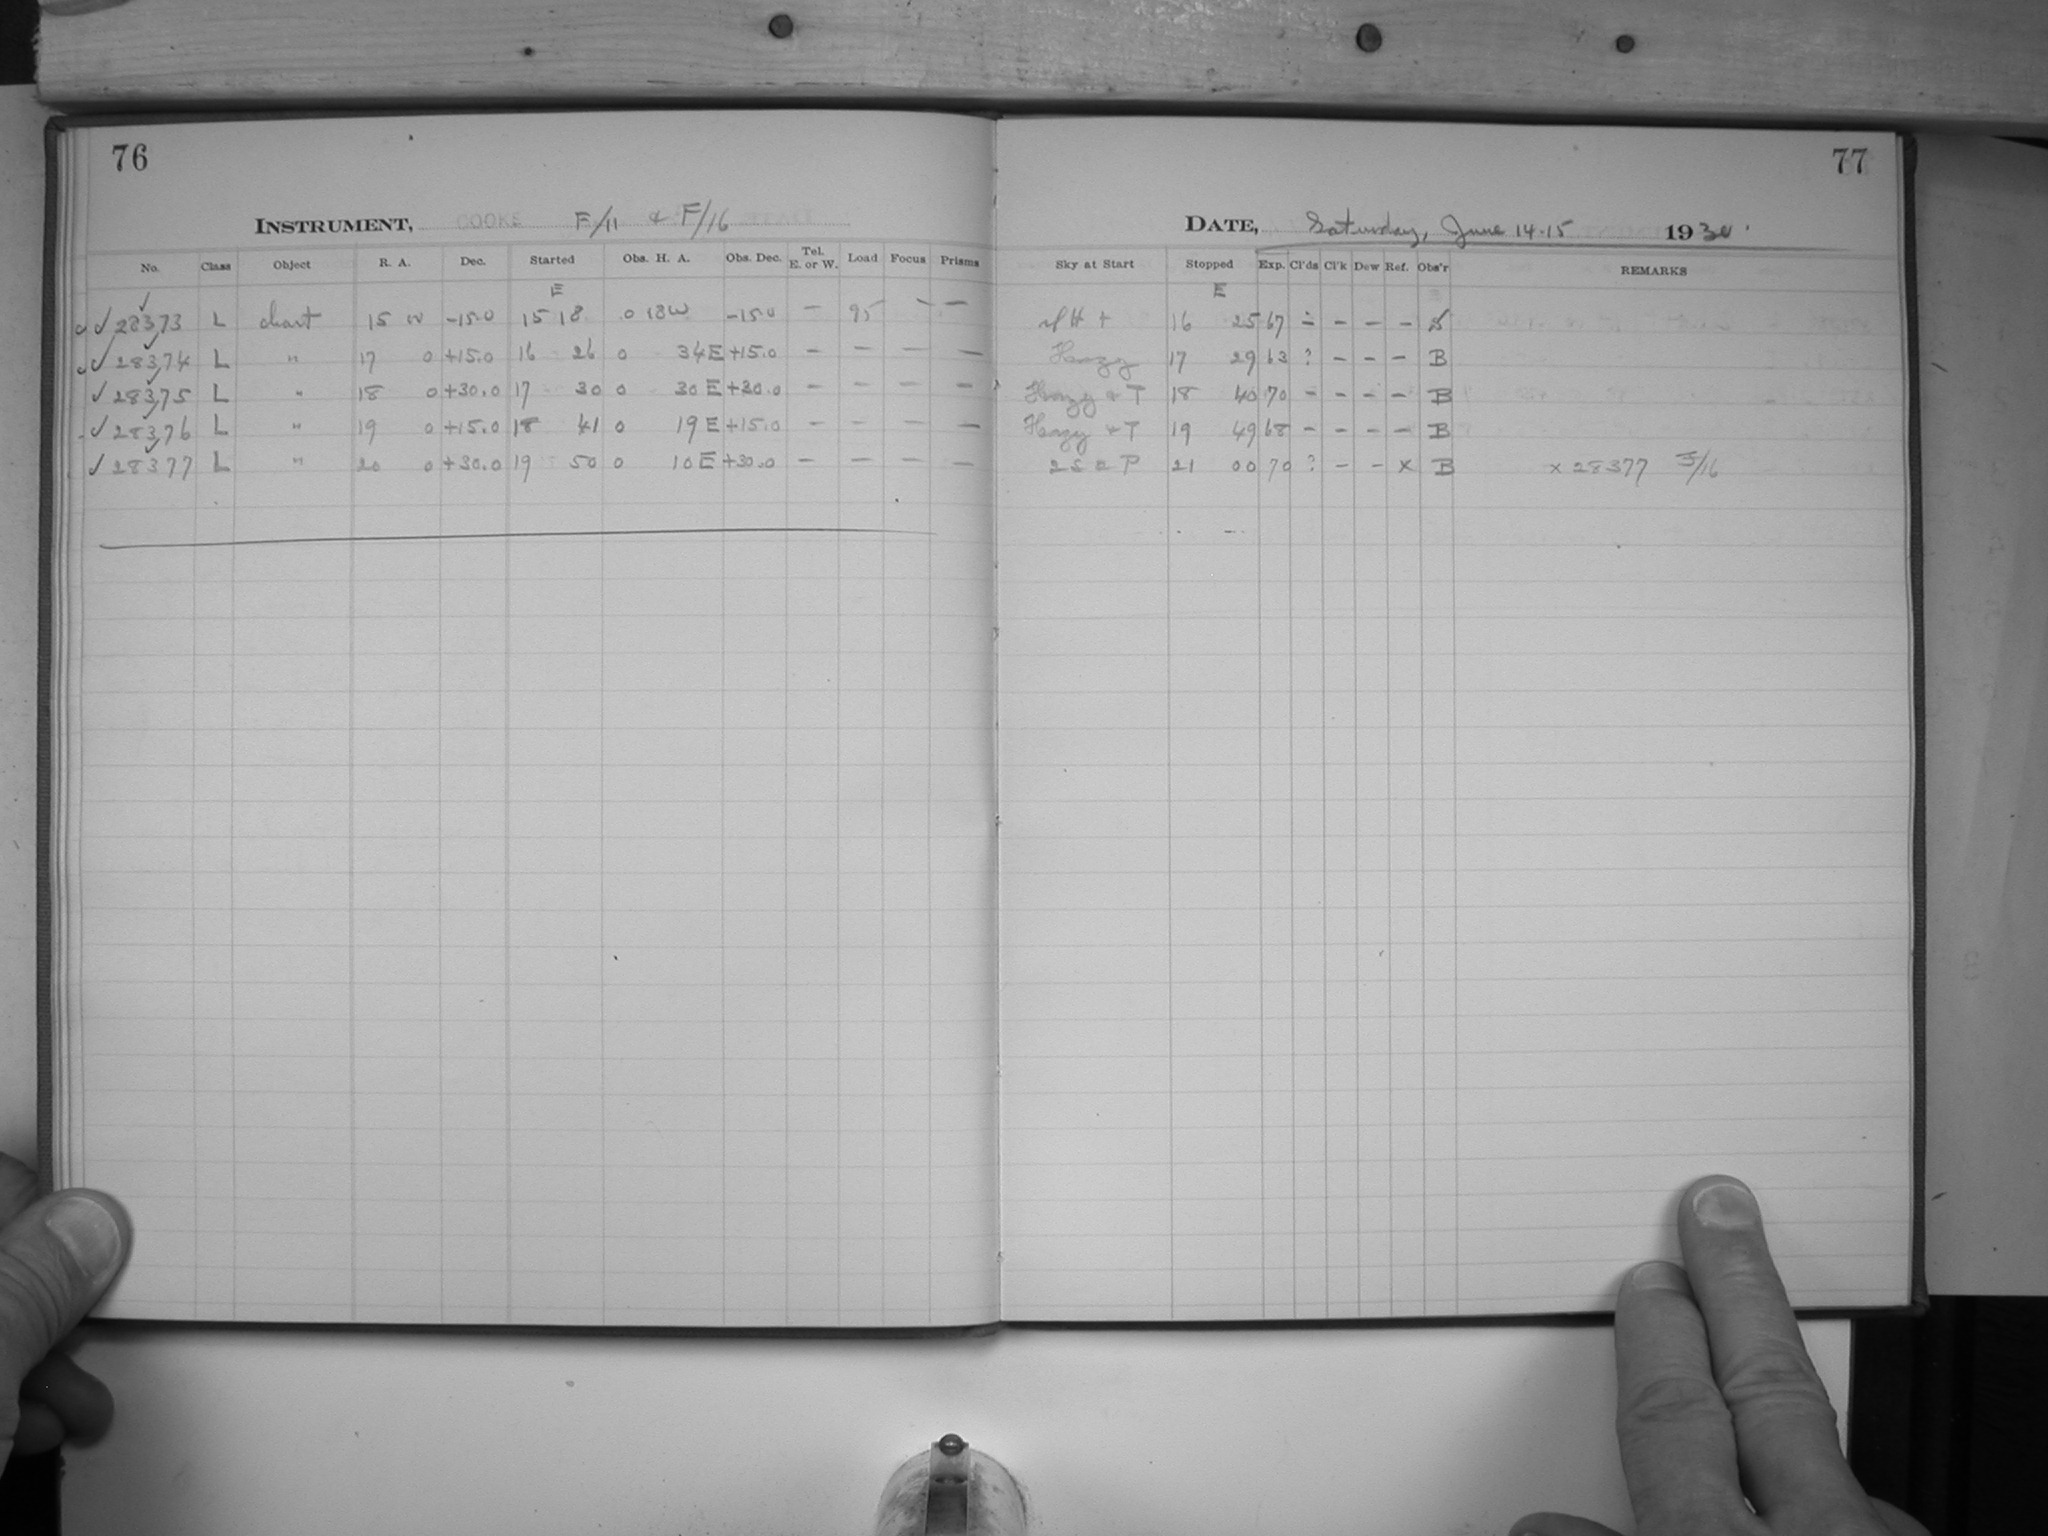 76
INSTRUMENT, COOKE F/11 & F/16
No. Class Object R. A. Dec. Started Obs. H. A. Obs. Dec. Tel. E. or W. Load Focus Prisms
E
✓ 28373 L chart 15 0 -15.0 15 18 0 18W -15.0 - 95 - -
✓ 28374 L " 17 0 +15.0 16 26 0 34E +15.0 - - - -
✓ 28375 L " 18 0 +30.0 17 30 0 30E +30.0 - - - -
✓ 28376 L " 19 0 +15.0 18 41 0 19E +15.0 - - - -
✓ 28377 L " 20 0 +30.0 19 50 0 10E +30.0 - - - -
77
DATE, Saturday, June 14-15 1930
Sky at Start Stopped Exp. Cl'ds Cl'k Dew Ref. Obs'r REMARKS
E
16 25 67 - - - -
Hazy 17 29 63 ? - - - B
Hazy & T 18 40 70 - - - - B
Hazy & T 19 49 68 - - - - B
21 00 70 ? - - x B x 28377 F/16